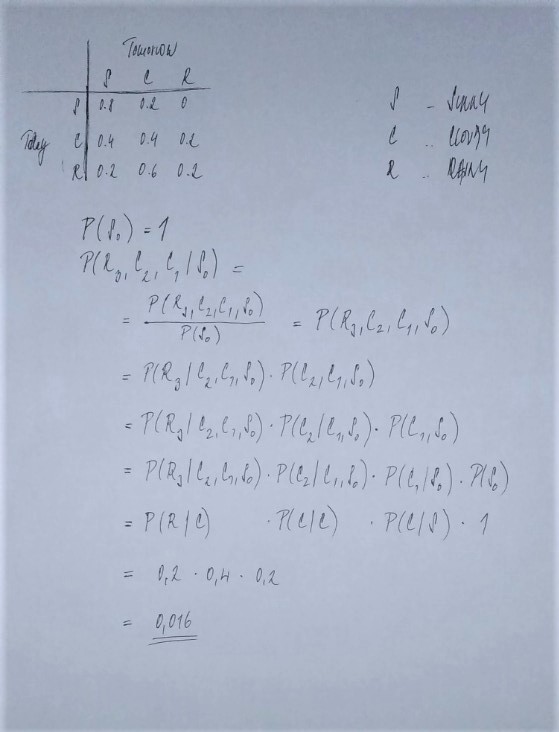 Tomorrow
S C R
S 0.8 0.2 0
Today C 0.4 0.4 0.2
R 0.2 0.6 0.2
S - SUNNY
C .. CLOUDY
R .. RAINY
P(S₀) = 1
P(R₃, C₂, C₁ | S₀) =
= P(R₃, C₂, C₁, S₀) / P(S₀) = P(R₃, C₂, C₁, S₀)
= P(R₃ | C₂, C₁, S₀) · P(C₂, C₁, S₀)
= P(R₃ | C₂, C₁, S₀) · P(C₂ | C₁, S₀) · P(C₁, S₀)
= P(R₃ | C₂, C₁, S₀) · P(C₂ | C₁, S₀) · P(C₁ | S₀) · P(S₀)
= P(R | C) · P(C | C) · P(C | S) · 1
= 0,2 · 0,4 · 0,2
= 0,016